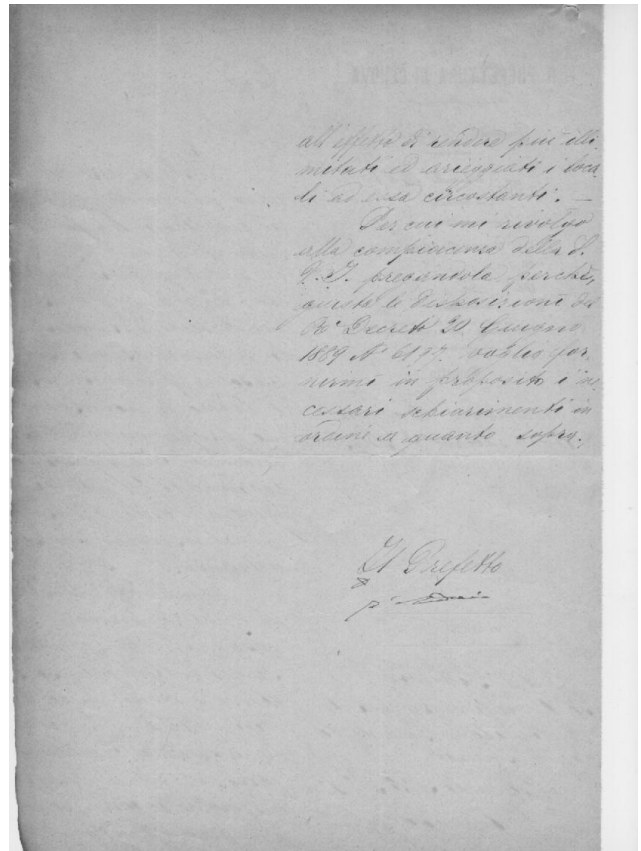 all'effetto di rendere più illi-
mitati ed arieggiati i loca-
li ad essa circostanti. —
Per cui mi rivolgo
alla compiacenza della S.
V. I. pregandola perchè,
giusta le disposizioni del
R° Decreto 20 Giugno
1889 N° voglia for-
nirmi in proposito i ne-
cessari schiarimenti in
ordine a quanto sopra.
Il Prefetto